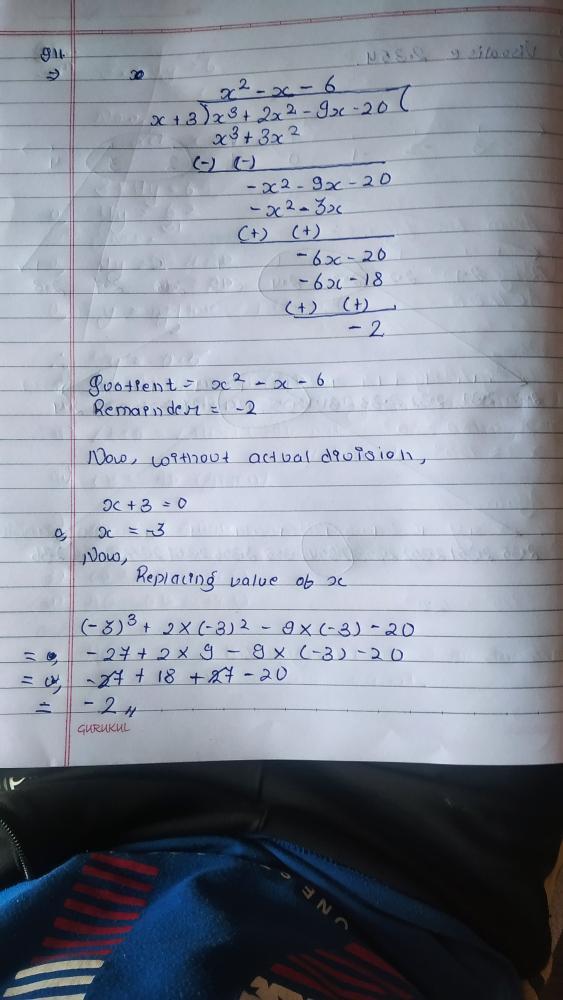 ⇒ x
x² - x - 6
x + 3)x³ + 2x² - 9x - 20(
x³ + 3x²
(-) (-)
-x² - 9x - 20
-x² - 3x
(+) (+)
-6x - 20
-6x - 18
(+) (+)
- 2
Quotient = x² - x - 6
Remainder = -2
Now, without actual division,
x + 3 = 0
o, x = -3
Now,
Replacing value of x
(-3)³ + 2×(-3)² - 9×(-3) - 20
= -27 + 2×9 - 9×(-3) - 20
= -27 + 18 + 27 - 20
= -2 〃
GURUKUL